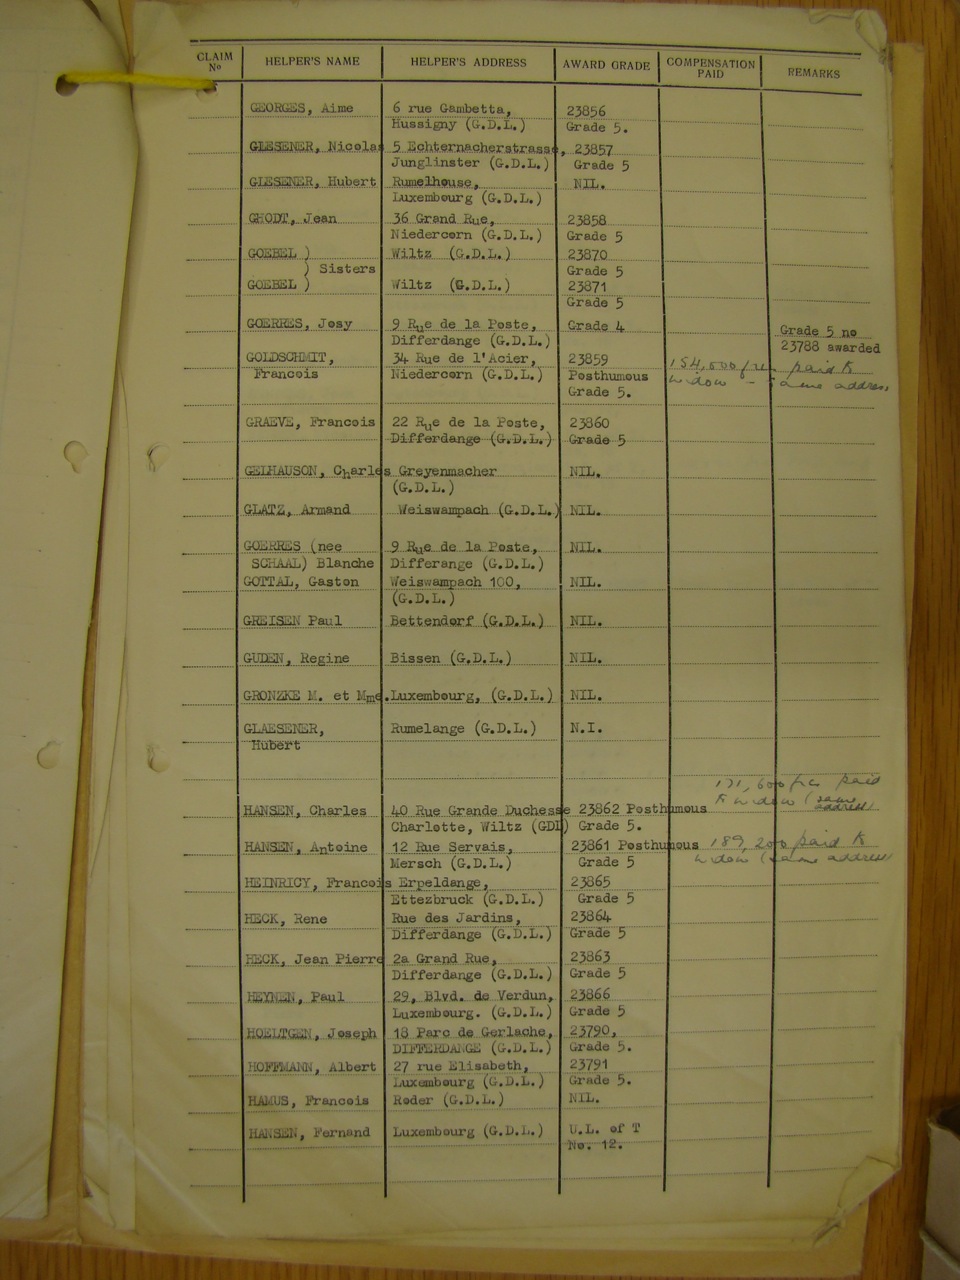 CLAIM No HELPER'S NAME HELPER'S ADDRESS AWARD GRADE COMPENSATION PAID REMARKS
GEORGES, Aime 6 rue Gambetta, 23856
Hussigny (G.D.L.) Grade 5.
GLESENER, Nicolas 5 Echternacherstrasse, 23857
Junglinster (G.D.L.) Grade 5
GLESENER, Hubert Rumelhouse, NIL.
Luxembourg (G.D.L.)
GHODT, Jean 36 Grand Rue, 23858
Niedercorn (G.D.L.) Grade 5
GOEBEL ) Wiltz (G.D.L.) 23870
) Sisters Grade 5
GOEBEL ) Wiltz (G.D.L.) 23871
Grade 5
GOERRES, Josy 9 Rue de la Poste, Grade 4 Grade 5 no
Differdange (G.D.L.) 23788 awarded
GOLDSCHMIT, 34 Rue de l'Acier, 23859 154,600 paid to
Francois Niedercorn (G.D.L.) Posthumous widow - same address
Grade 5.
GRAEVE, Francois 22 Rue de la Poste, 23860
Differdange (G.D.L.) Grade 5
GELHAUSON, Charles Greyenmacher NIL.
(G.D.L.)
GLATZ, Armand Weiswampach (G.D.L.) NIL.
GOERRES (nee 9 Rue de la Poste, NIL.
SCHAAL) Blanche Differange (G.D.L.)
GOTTAL, Gaston Weiswampach 100, NIL.
(G.D.L.)
GREISEN Paul Bettendorf (G.D.L.) NIL.
GUDEN, Regine Bissen (G.D.L.) NIL.
GRONZKE M. et Mme. Luxembourg, (G.D.L.) NIL.
GLAESENER, Rumelange (G.D.L.) N.I.
Hubert
171,600 frs paid
to widow (same address)
HANSEN, Charles 40 Rue Grande Duchesse 23862 Posthumous
Charlotte, Wiltz (GDL) Grade 5.
HANSEN, Antoine 12 Rue Servais, 23861 Posthumous 189,200 paid to
Mersch (G.D.L.) Grade 5 widow (same address
HEINRICY, Francois Erpeldange, 23865
Ettezbruck (G.D.L.) Grade 5
HECK, Rene Rue des Jardins, 23864
Differdange (G.D.L.) Grade 5
HECK, Jean Pierre 2a Grand Rue, 23863
Differdange (G.D.L.) Grade 5
HEYNEN, Paul 29, Blvd. de Verdun, 23866
Luxembourg. (G.D.L.) Grade 5
HOELTGEN, Joseph 18 Parc de Gerlache, 23790,
DIFFERDANGE (G.D.L.) Grade 5.
HOFFMANN, Albert 27 rue Elisabeth, 23791
Luxembourg (G.D.L.) Grade 5.
HAMUS, Francois Roder (G.D.L.) NIL.
HANSEN, Fernand Luxembourg (G.D.L.) U.L. of T
No. 12.